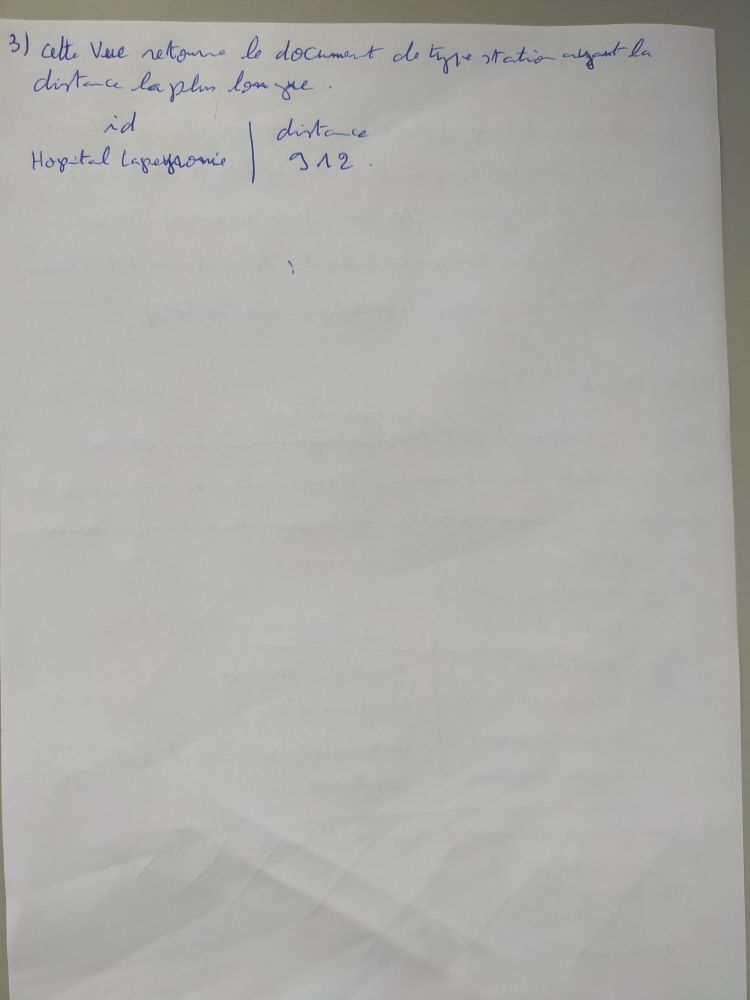 3) cette Vue retourne le document de type station ayant la
distance la plus longue.
id | distance
Hopital Lapeyronie | 912.